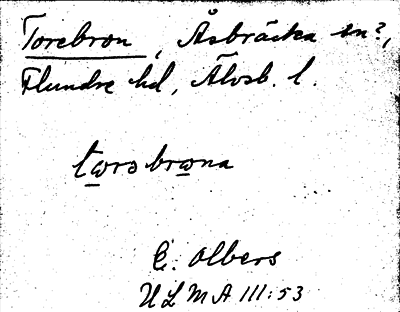 Torebron, Åsbräcka sn?,
Flundre hd, Älvsb. l.
tωrə brωna
E. Olbers
ULMA III:53